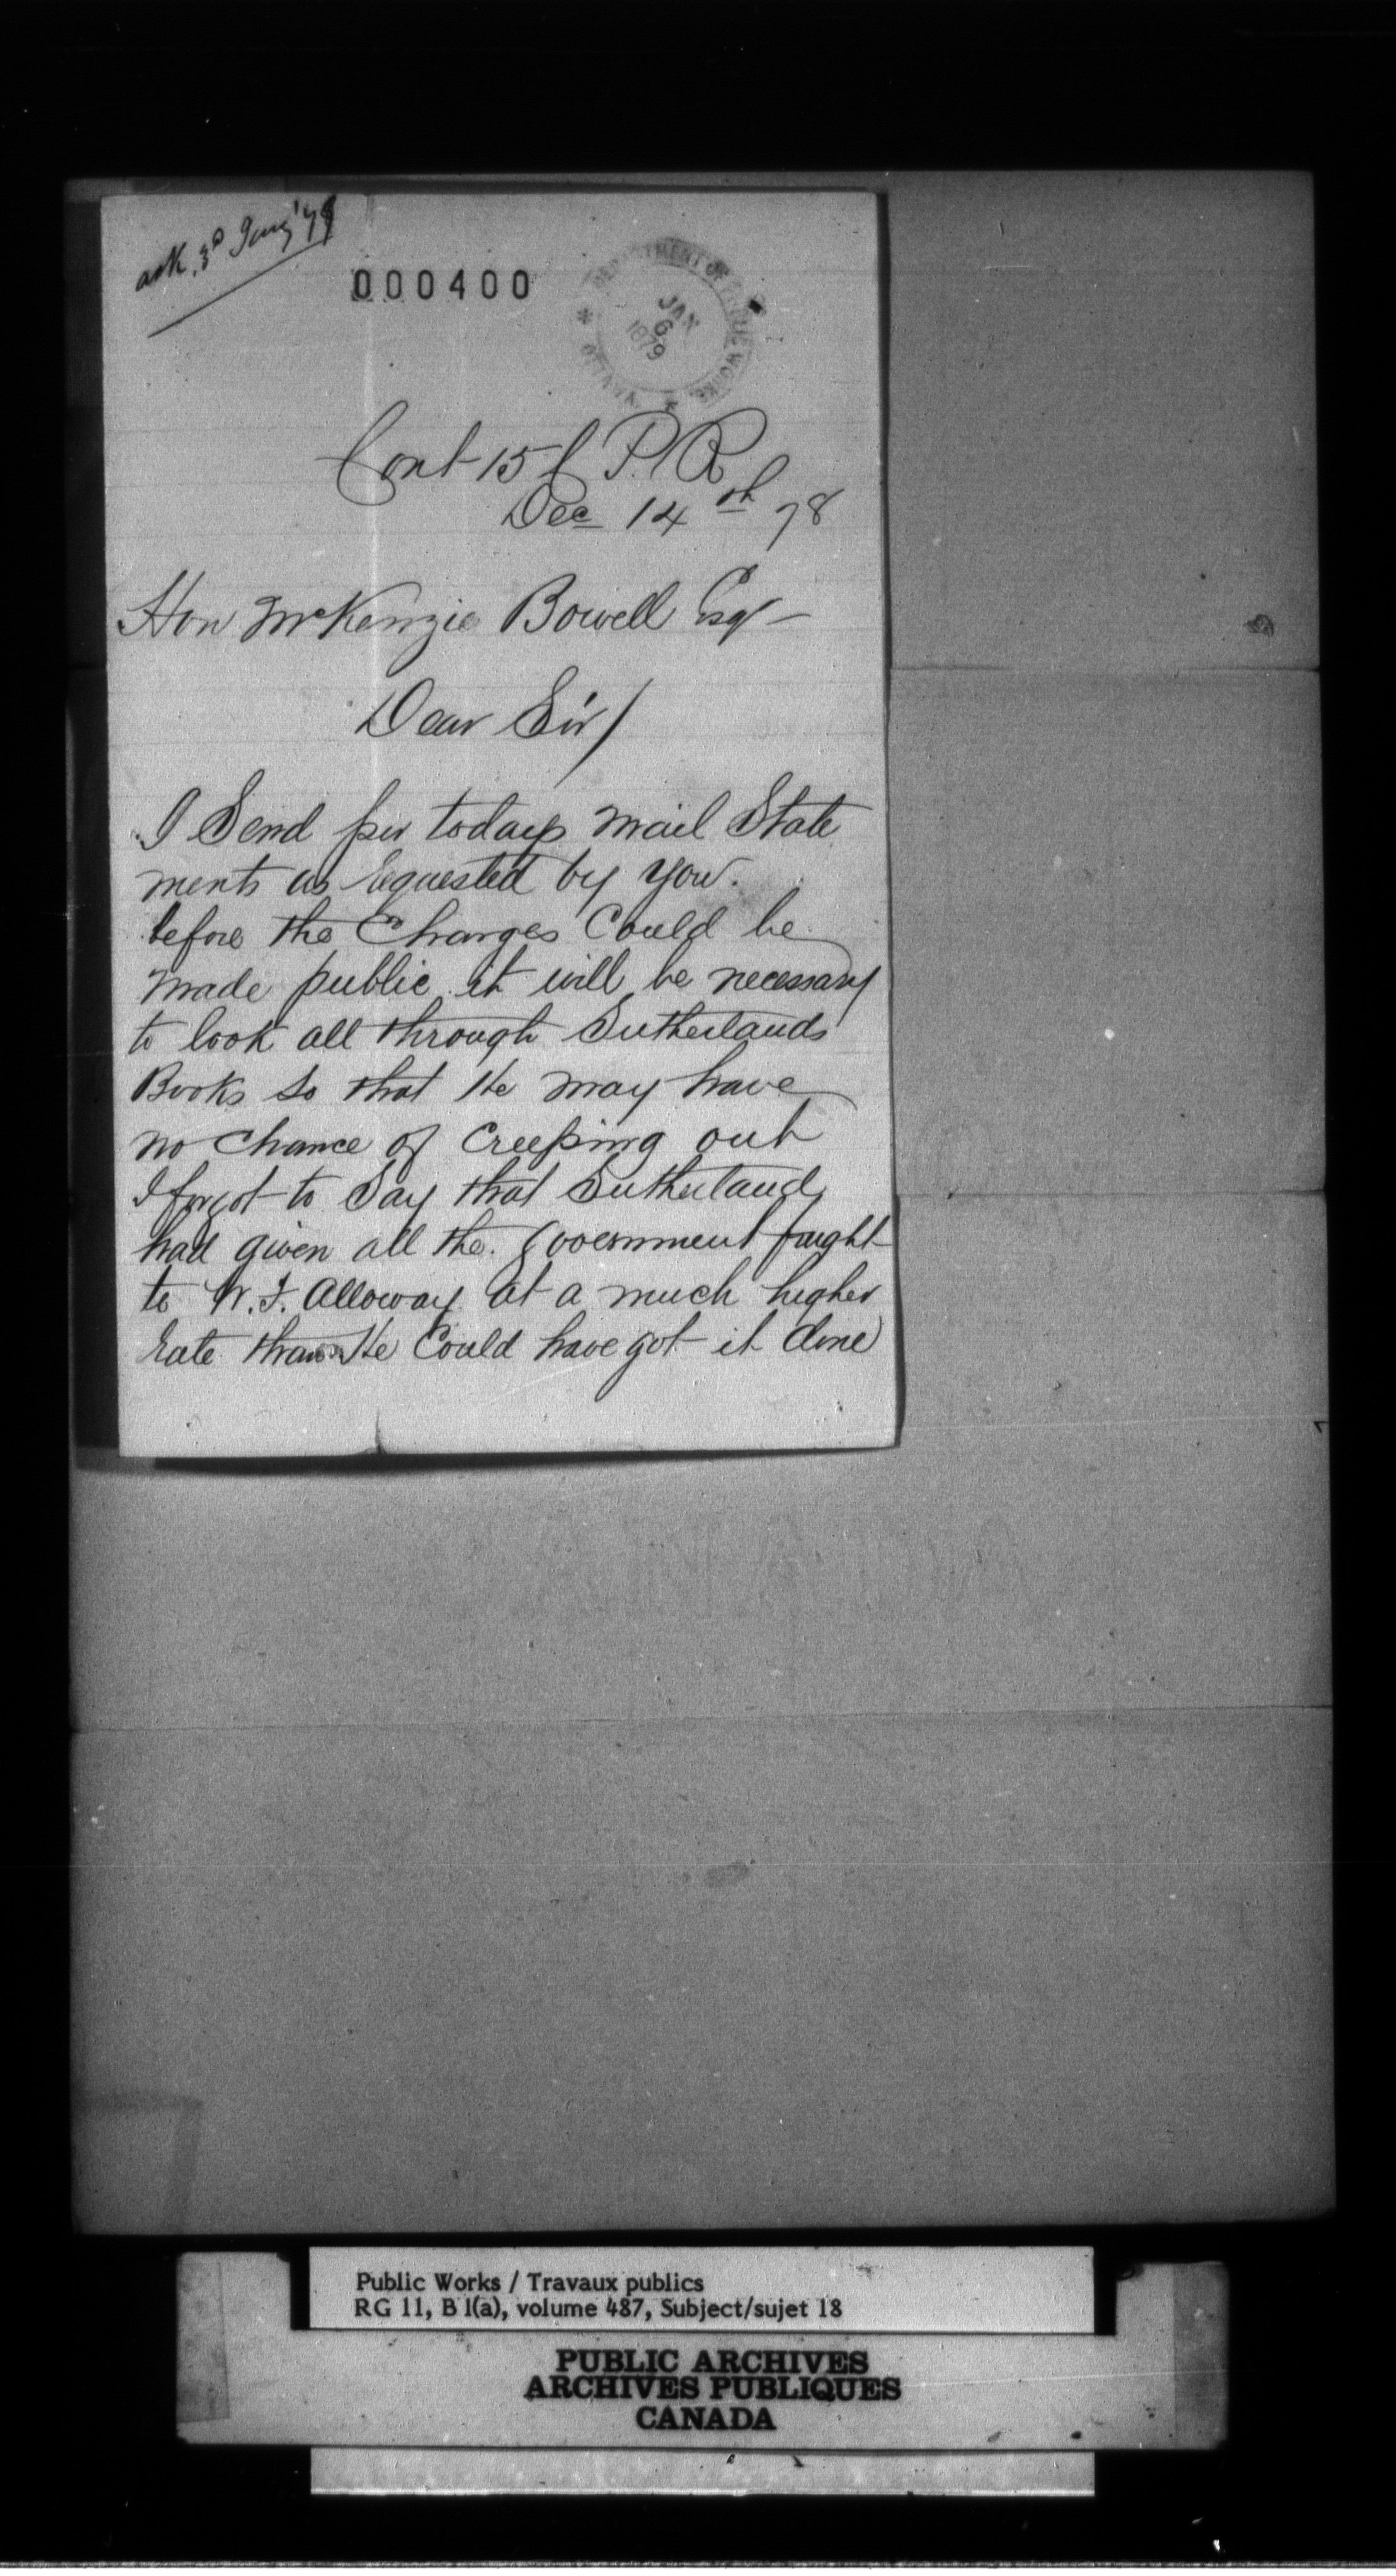 ack. 3rd Jany '79
000400
DEPARTMENT OF PUBLIC WORKS
JAN
6
1879
CANADA
Cont 15 C P. R
Dec 14th 78
Hon McKenzie Bowell Esqr
Dear Sir/
I Send per todays mail State
ments as requested by you.
before the Charges Could be
made public it will be necessary
to look all through Sutherlands
Books So that He may have
no chance of Creeping out
I forgot to Say that Sutherland
had given all the Government fraght
to W. F. Alloway at a much higher
rate than He Could have got it done
Public Works / Travaux publics
RG 11, B 1(a), volume 487, Subject/sujet 18
PUBLIC ARCHIVES
ARCHIVES PUBLIQUES
CANADA